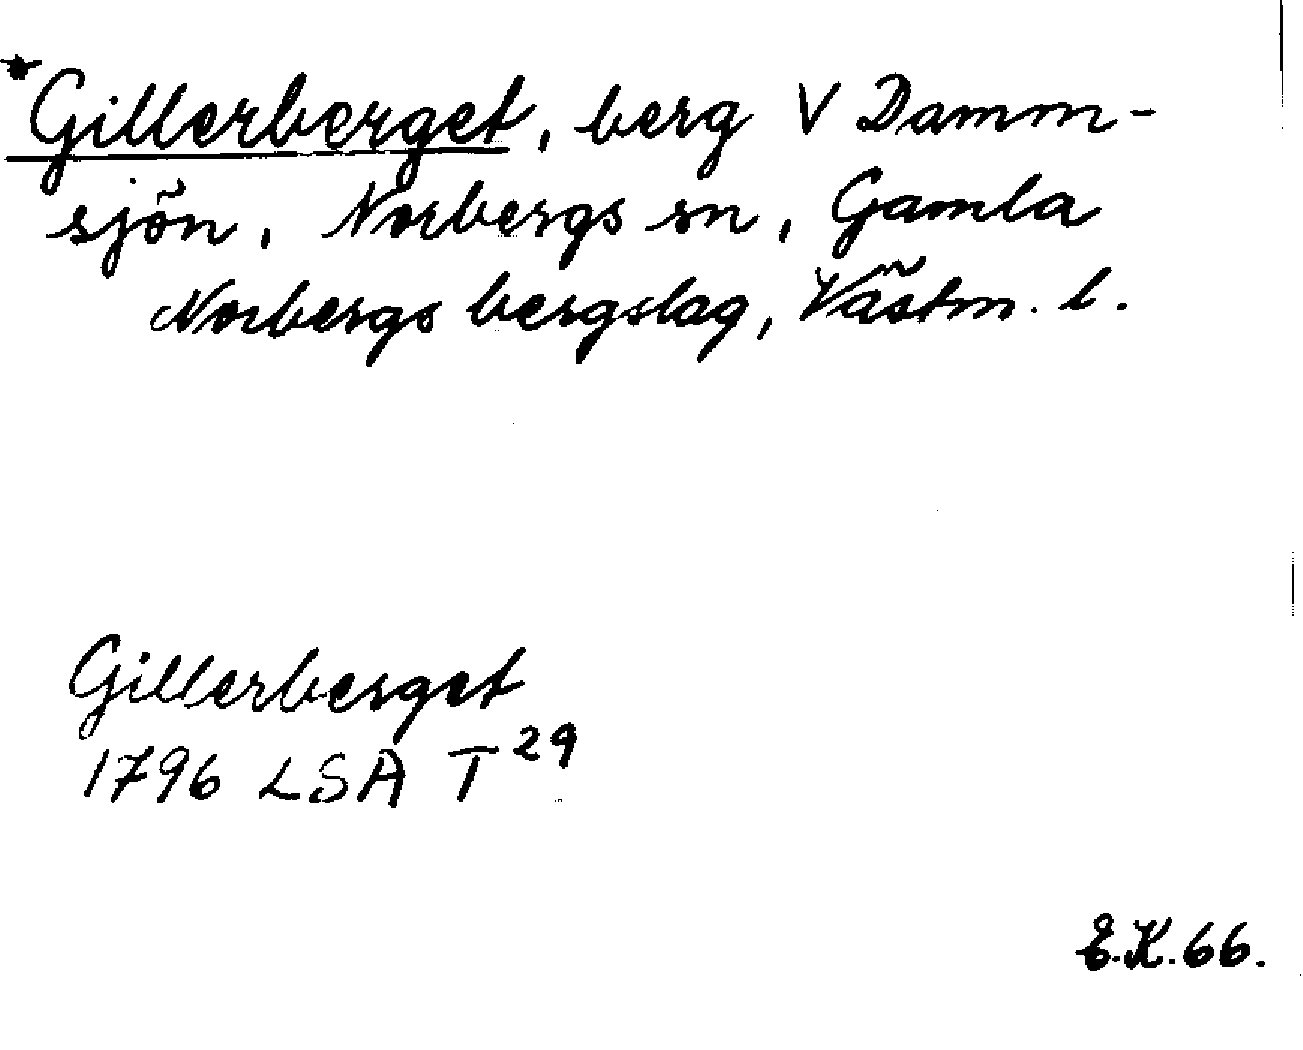 *Gillerberget, berg V Damm-
sjön, Norbergs sn, Gamla
Norbergs bergslag, Västm. l.
Gillerberget
1796 LSA T 29
E.K.66.